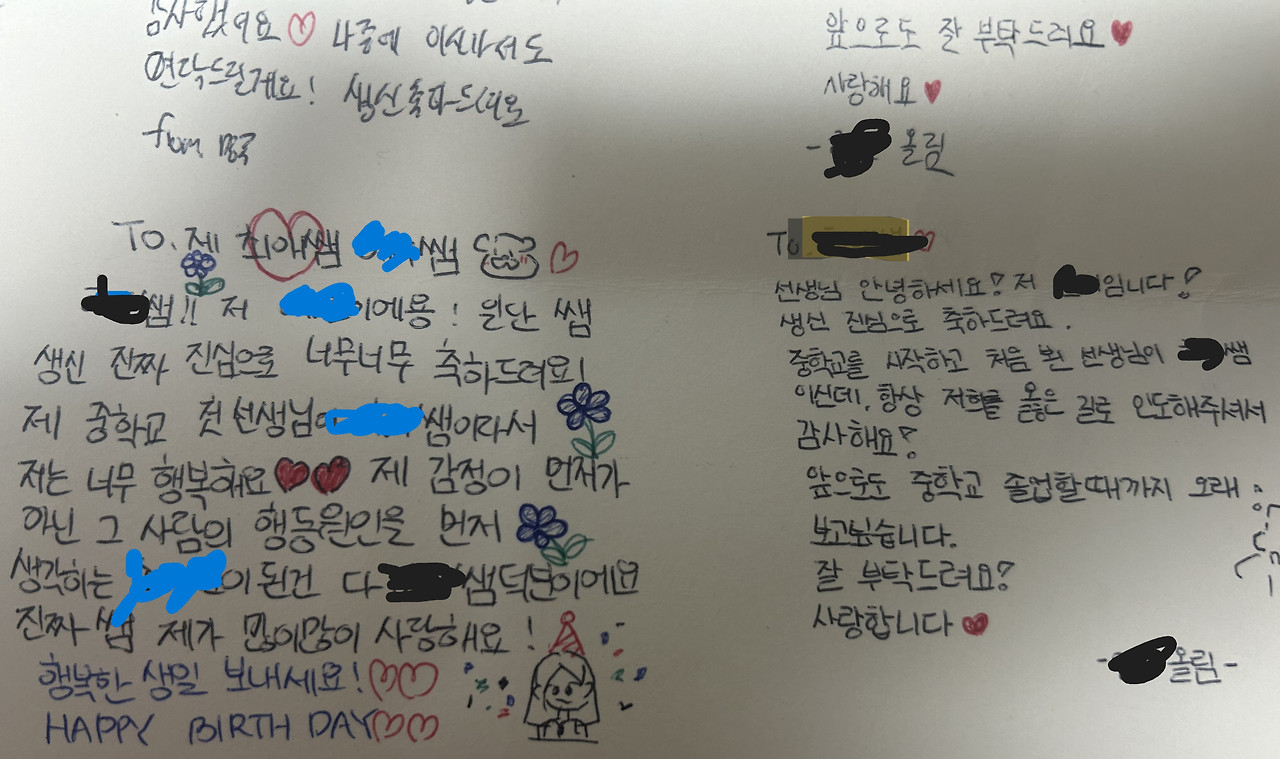 감사했어요♡ 나중에 이사가서도
연락드릴게요! 생신축하드려요
from.
To. 제 최애쌤 쌤 ♡
쌤!! 저 이에용! 일단 쌤
생신 진짜 진심으로 너무너무 축하드려요!
제 중학교 첫 선생님이 쌤이라서
저는 너무 행복해요♥♥ 제 감정이 먼저가
아닌 그 사람의 행동원인을 먼저
생각하는 이 된건 다 쌤덕분이에요
진짜 쌤 제가 많이많이 사랑해요!
행복한 생일 보내세요!♡♡
HAPPY BIRTH DAY♡♡
앞으로도 잘 부탁드려요♥
사랑해요♥
- 올림
To ♡
선생님 안녕하세요? 저 입니다!
생신 진심으로 축하드려요.
중학교를 시작하고 처음 뵌 선생님이 쌤
이신데, 항상 저희를 옳은 길로 인도해주셔서
감사해요?
앞으로도 중학교 졸업할때까지 오래
보고싶습니다.
잘 부탁드려요?
사랑합니다♥
- 올림-